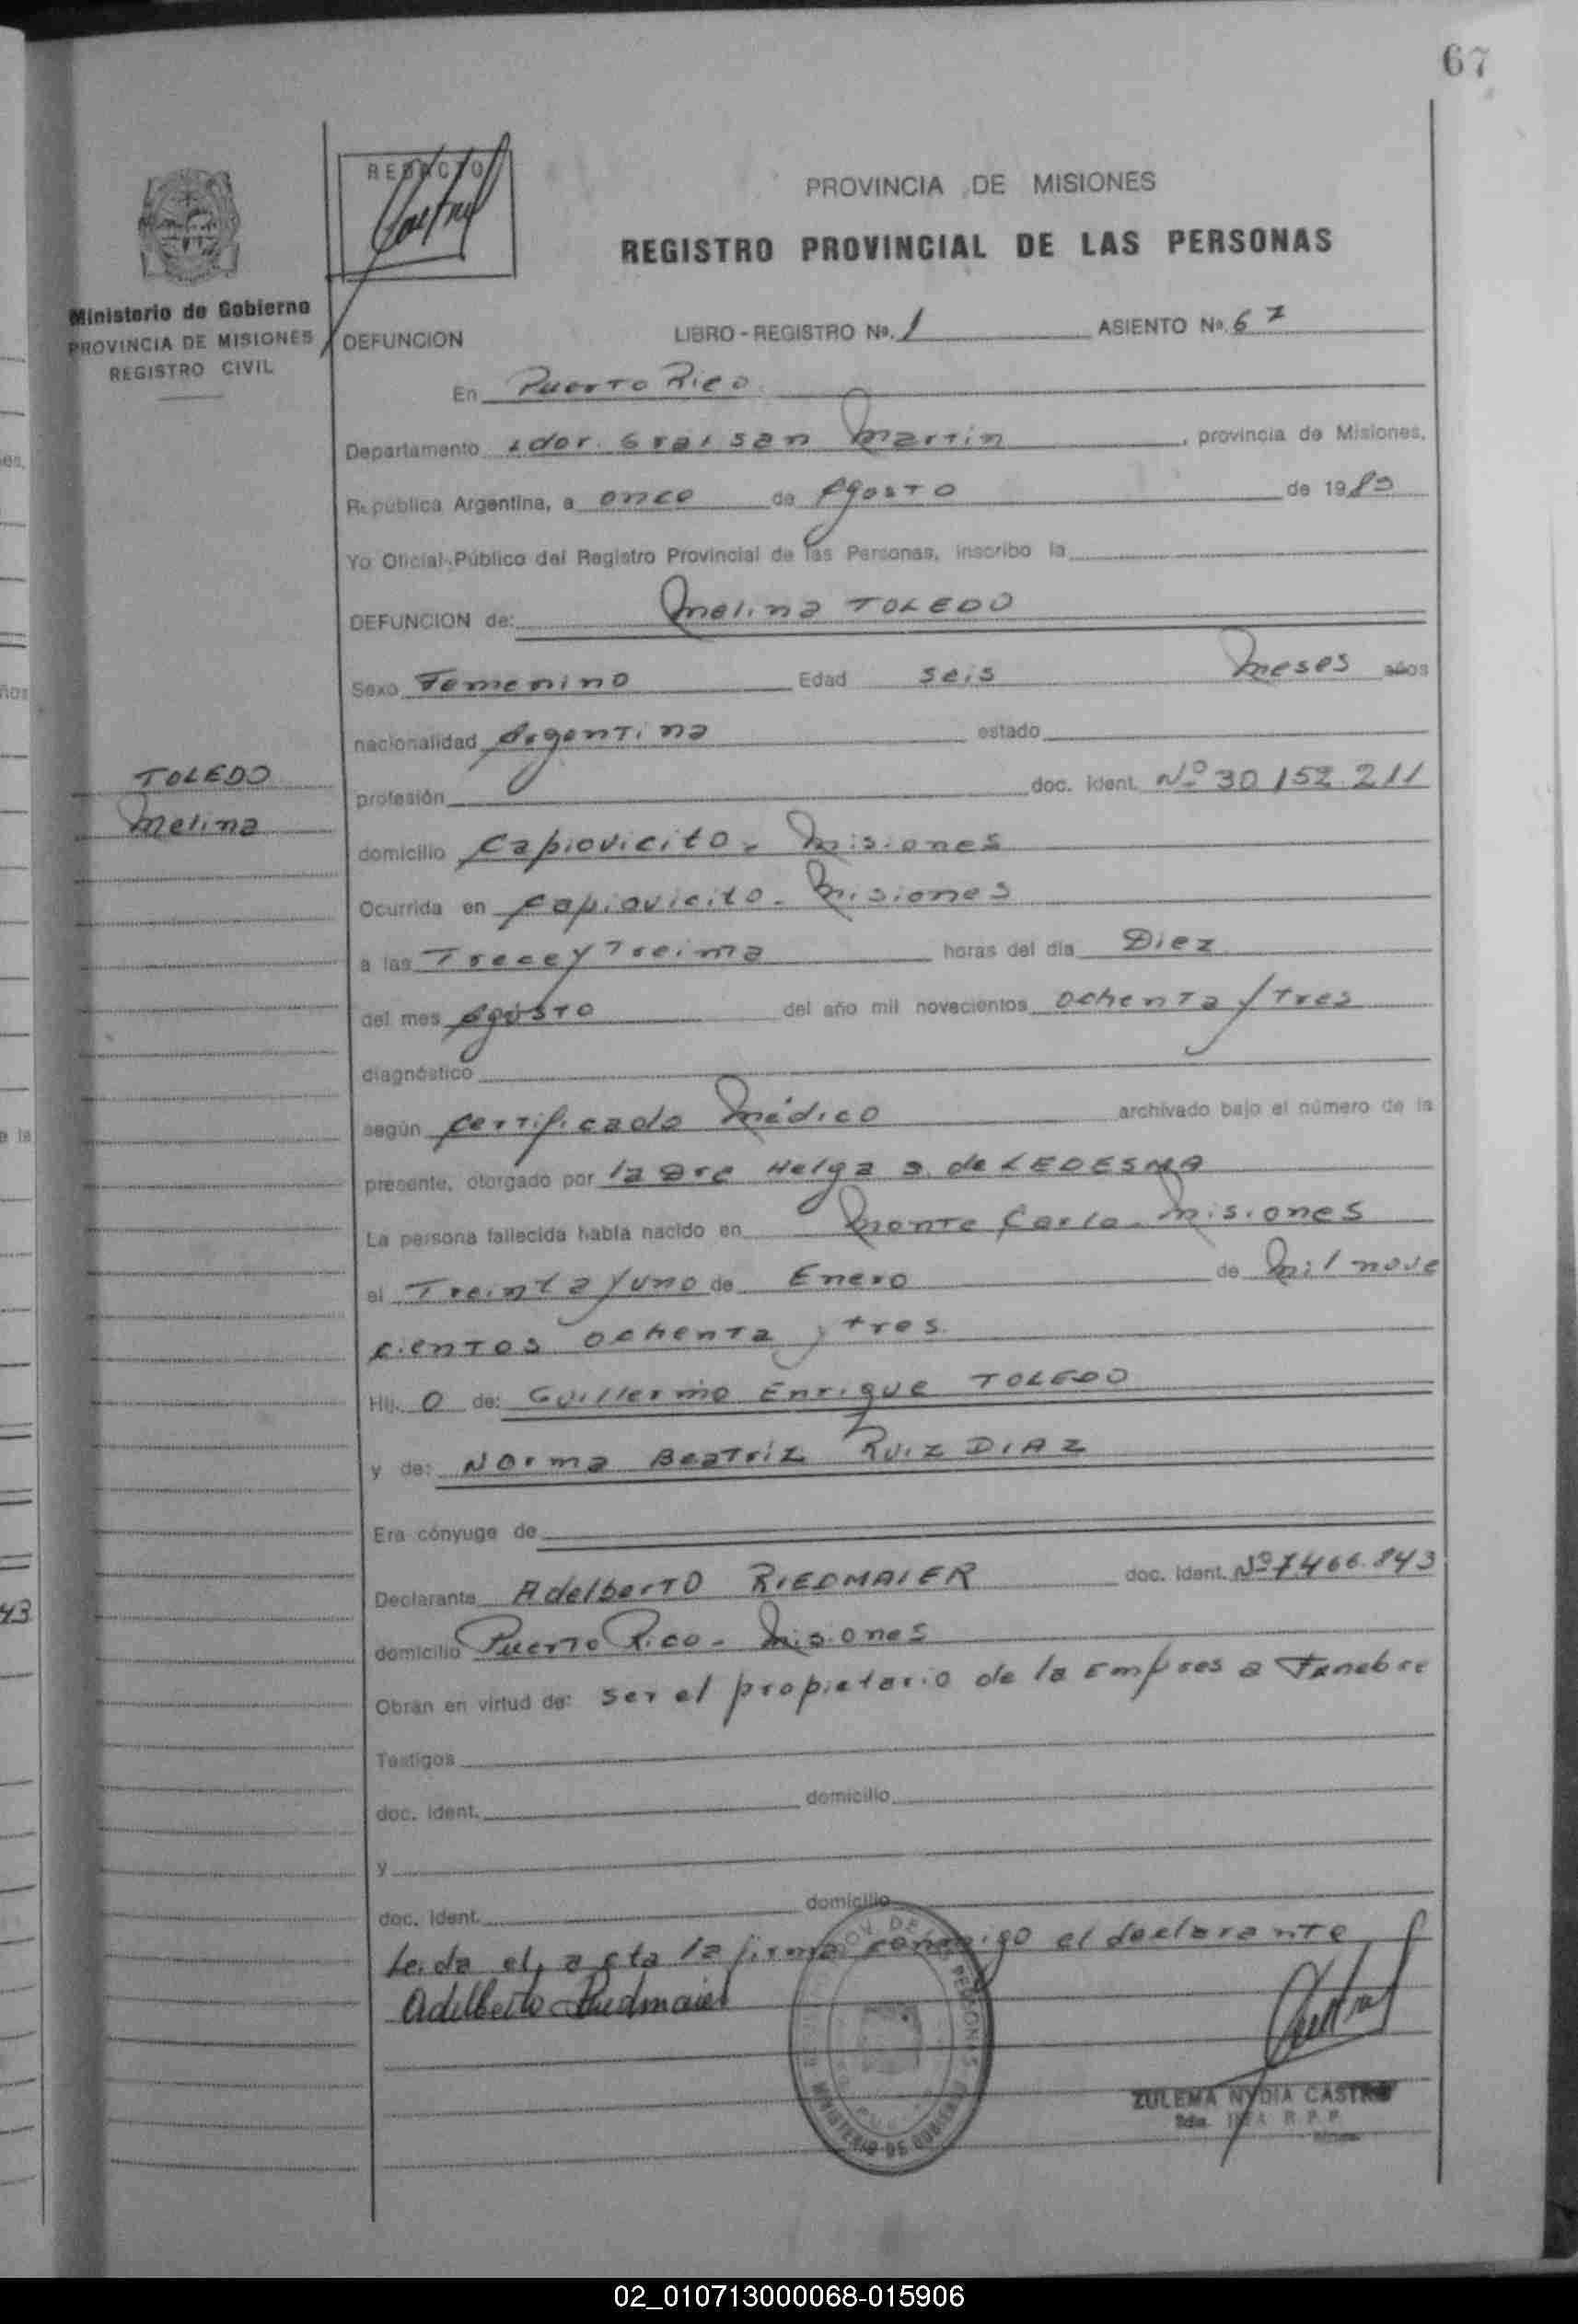 67
REDACTO
PROVINCIA DE MISIONES
REGISTRO PROVINCIAL DE LAS PERSONAS
Ministerio de Gobierno
PROVINCIA DE MISIONES
REGISTRO CIVIL
DEFUNCION LIBRO - REGISTRO Nº. 1 ASIENTO Nº. 67
En Puerto Rico
Departamento Ldor. Gral San Martin, provincia de Misiones,
República Argentina, a once de Agosto de 1983
Yo Oficial Público del Registro Provincial de las Personas, inscribo la
DEFUNCION de: Melina TOLEDO
Sexo Femenino Edad seis meses años
nacionalidad Argentina estado
TOLEDO
Melina
profesión doc. ident. Nº 30 152 211
domicilio Capiovicito - Misiones
Ocurrida en Capiovicito - Misiones
a las Trece y Treinta horas del día Diez
del mes Agosto del año mil novecientos ochenta y tres
diagnóstico
según certificado Médico archivado bajo el número de la
presente, otorgado por la Dra Helga S. de LEDESMA
La persona fallecida había nacido en Monte Carlo - Misiones
el Treinta y uno de Enero de mil nove
cientos ochenta y tres
Hij. O de: Guillermo Enrique TOLEDO
y de: Norma Beatriz Ruiz DIAZ
Era cónyuge de
Declarante Adelberto RIEDMAIER doc. ident. Nº 7466.843
domicilio Puerto Rico - Misiones
Obran en virtud de: ser el propietario de la Empresa Funebre
Testigos
doc. ident. domicilio
y
doc. ident. domicilio
Leida el acta la firma conmigo el declarante
Adelberto Riedmaier
MINISTERIO DE GOBIERNO
ZULEMA NYDIA CASTRO
02_010713000068-015906